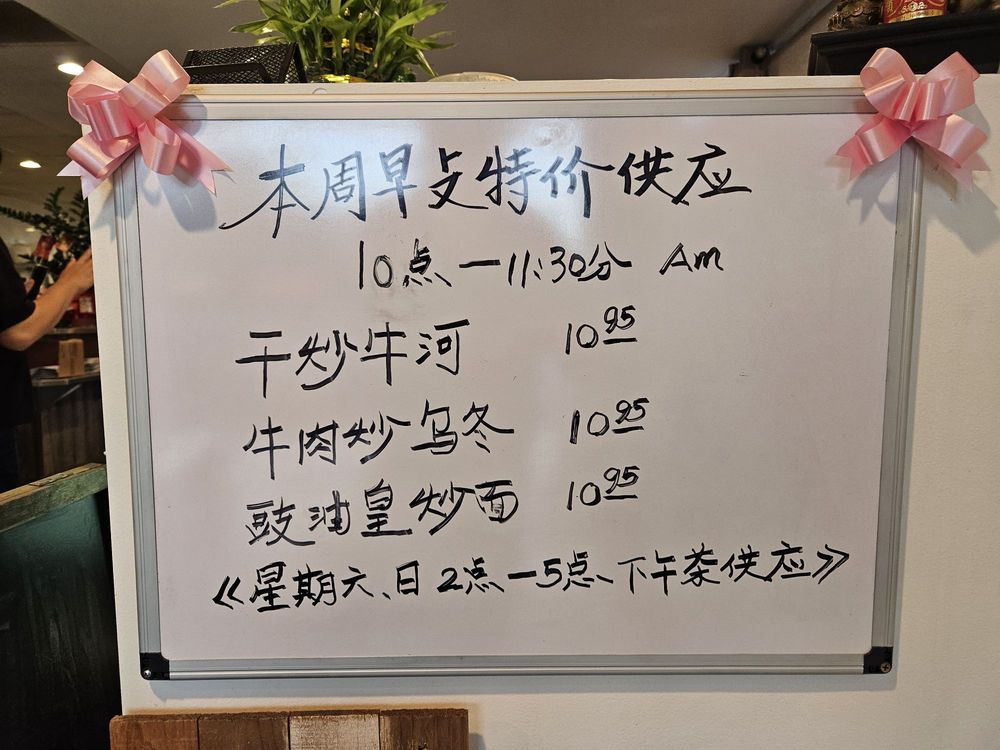 本周早歺特价供应
10点一11:30分 Am
干炒牛河 10.95
牛肉炒乌冬 10.95
豉油皇炒面 10.95
《星期六、日2点一5点、下午茶供应》